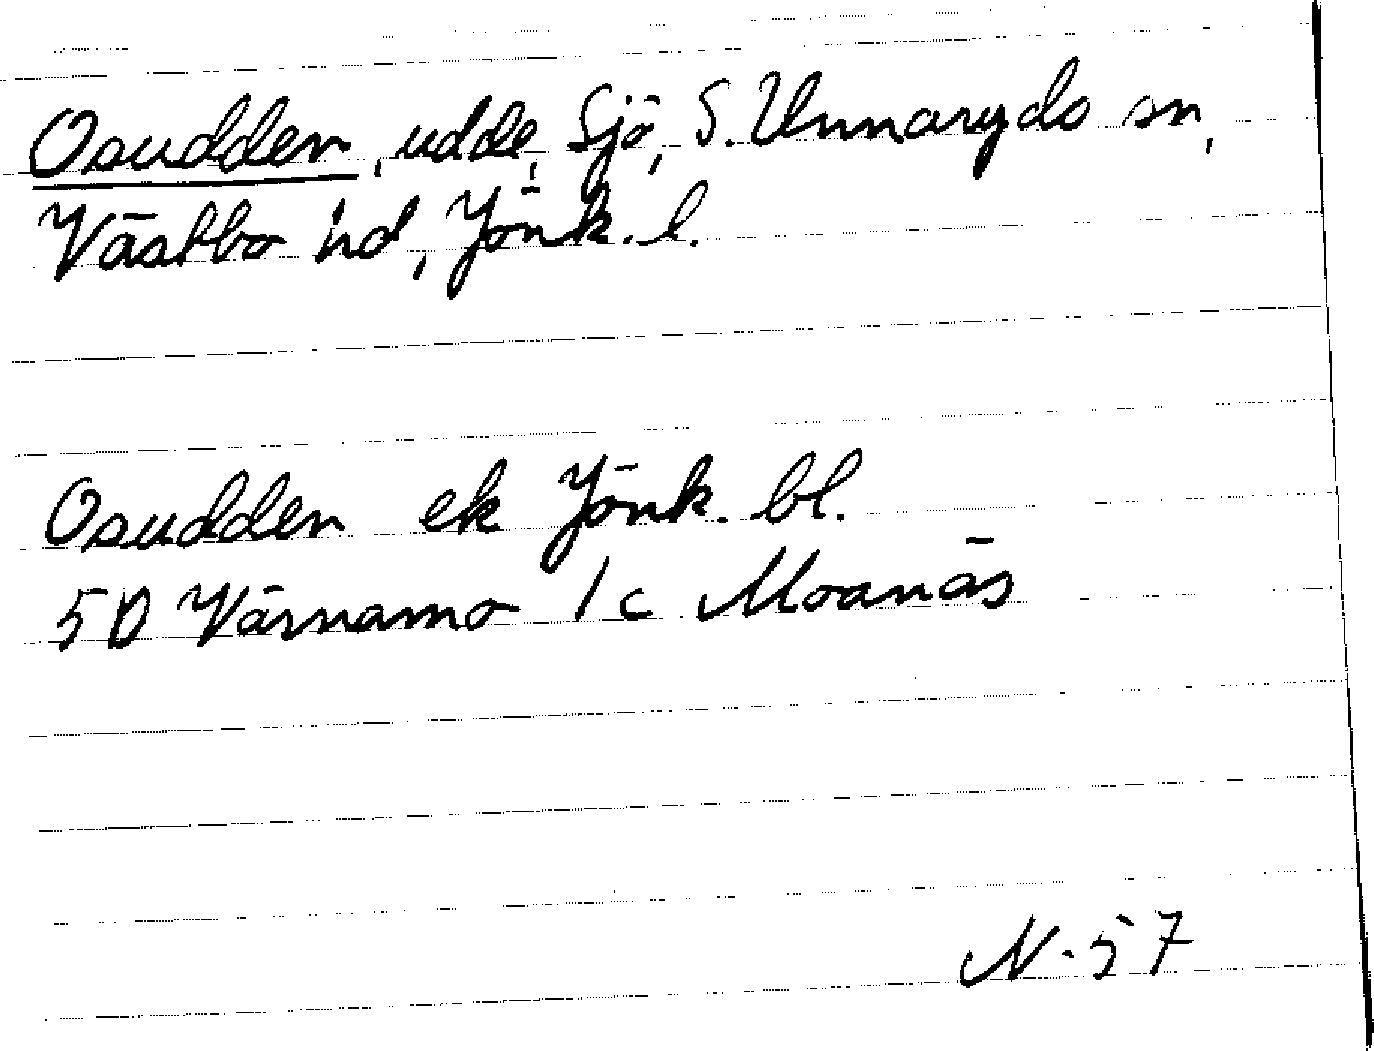 Osudden, udde, Sjö, S. Unnaryds sn,
Västbo hd, Jönk. l.
Osudden ek Jönk. bl.
5D Värnamo 1c Moanäs
N-57